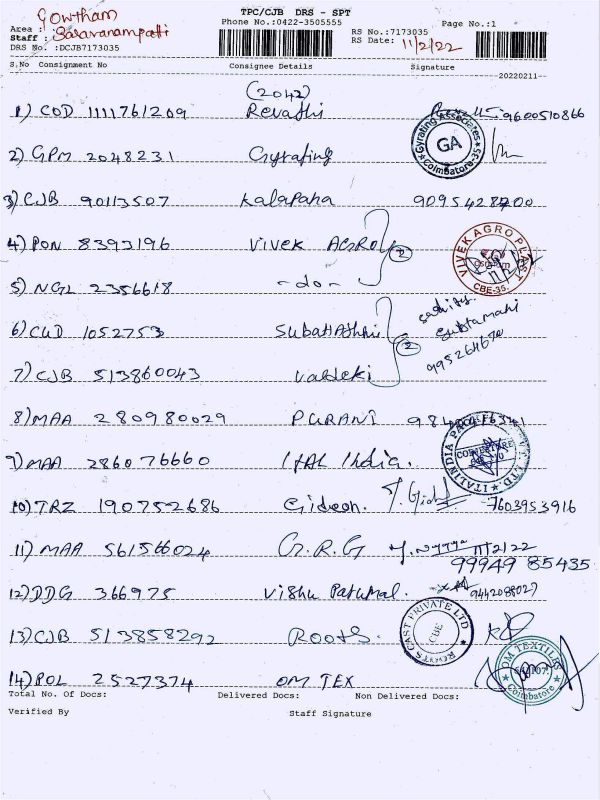 Gowtham
TPC/CJB DRS - SPT
Area :
Phone No.:0422-3505555
Page No.:1
Staff : Saravanampatti
RS No.:7173035
DRS No. :DCJB7173035
RS Date: 11/2/22
S.No Consignment No Consignee Details Signature
--20220211--
(2042)
1) COD 1111761209 Revathi 9600510866
Gyrating Associates GA Coimbatore-35
2) GPM 2048231 Gyrating
3) CJB 90113507 Kalapana
4) PON 8393196 VIVEK AGRO 2
VIVEK AGRO PLAST CBE-35.
5) NGL 2356618 -do-
6) CUD 1052753
7) CJB 513860043
2
8) MAA 280980029 PURANI
9) MAA 286076660 ITAL India.
ITALINDIA
10) TRZ 190752686 Gideon. 7603953916
11) MAA 561566024 G.R.G 11/2/22
99949 85435
12) DDG 366975 Vishu
13) CJB 513858292 Roots.
ROOTS CAST PRIVATE LTD CBE
14) POL 2527374 OM TEX
OM TEXTILES Coimbatore
Total No. Of Docs: Delivered Docs: Non Delivered Docs:
Verified By Staff Signature